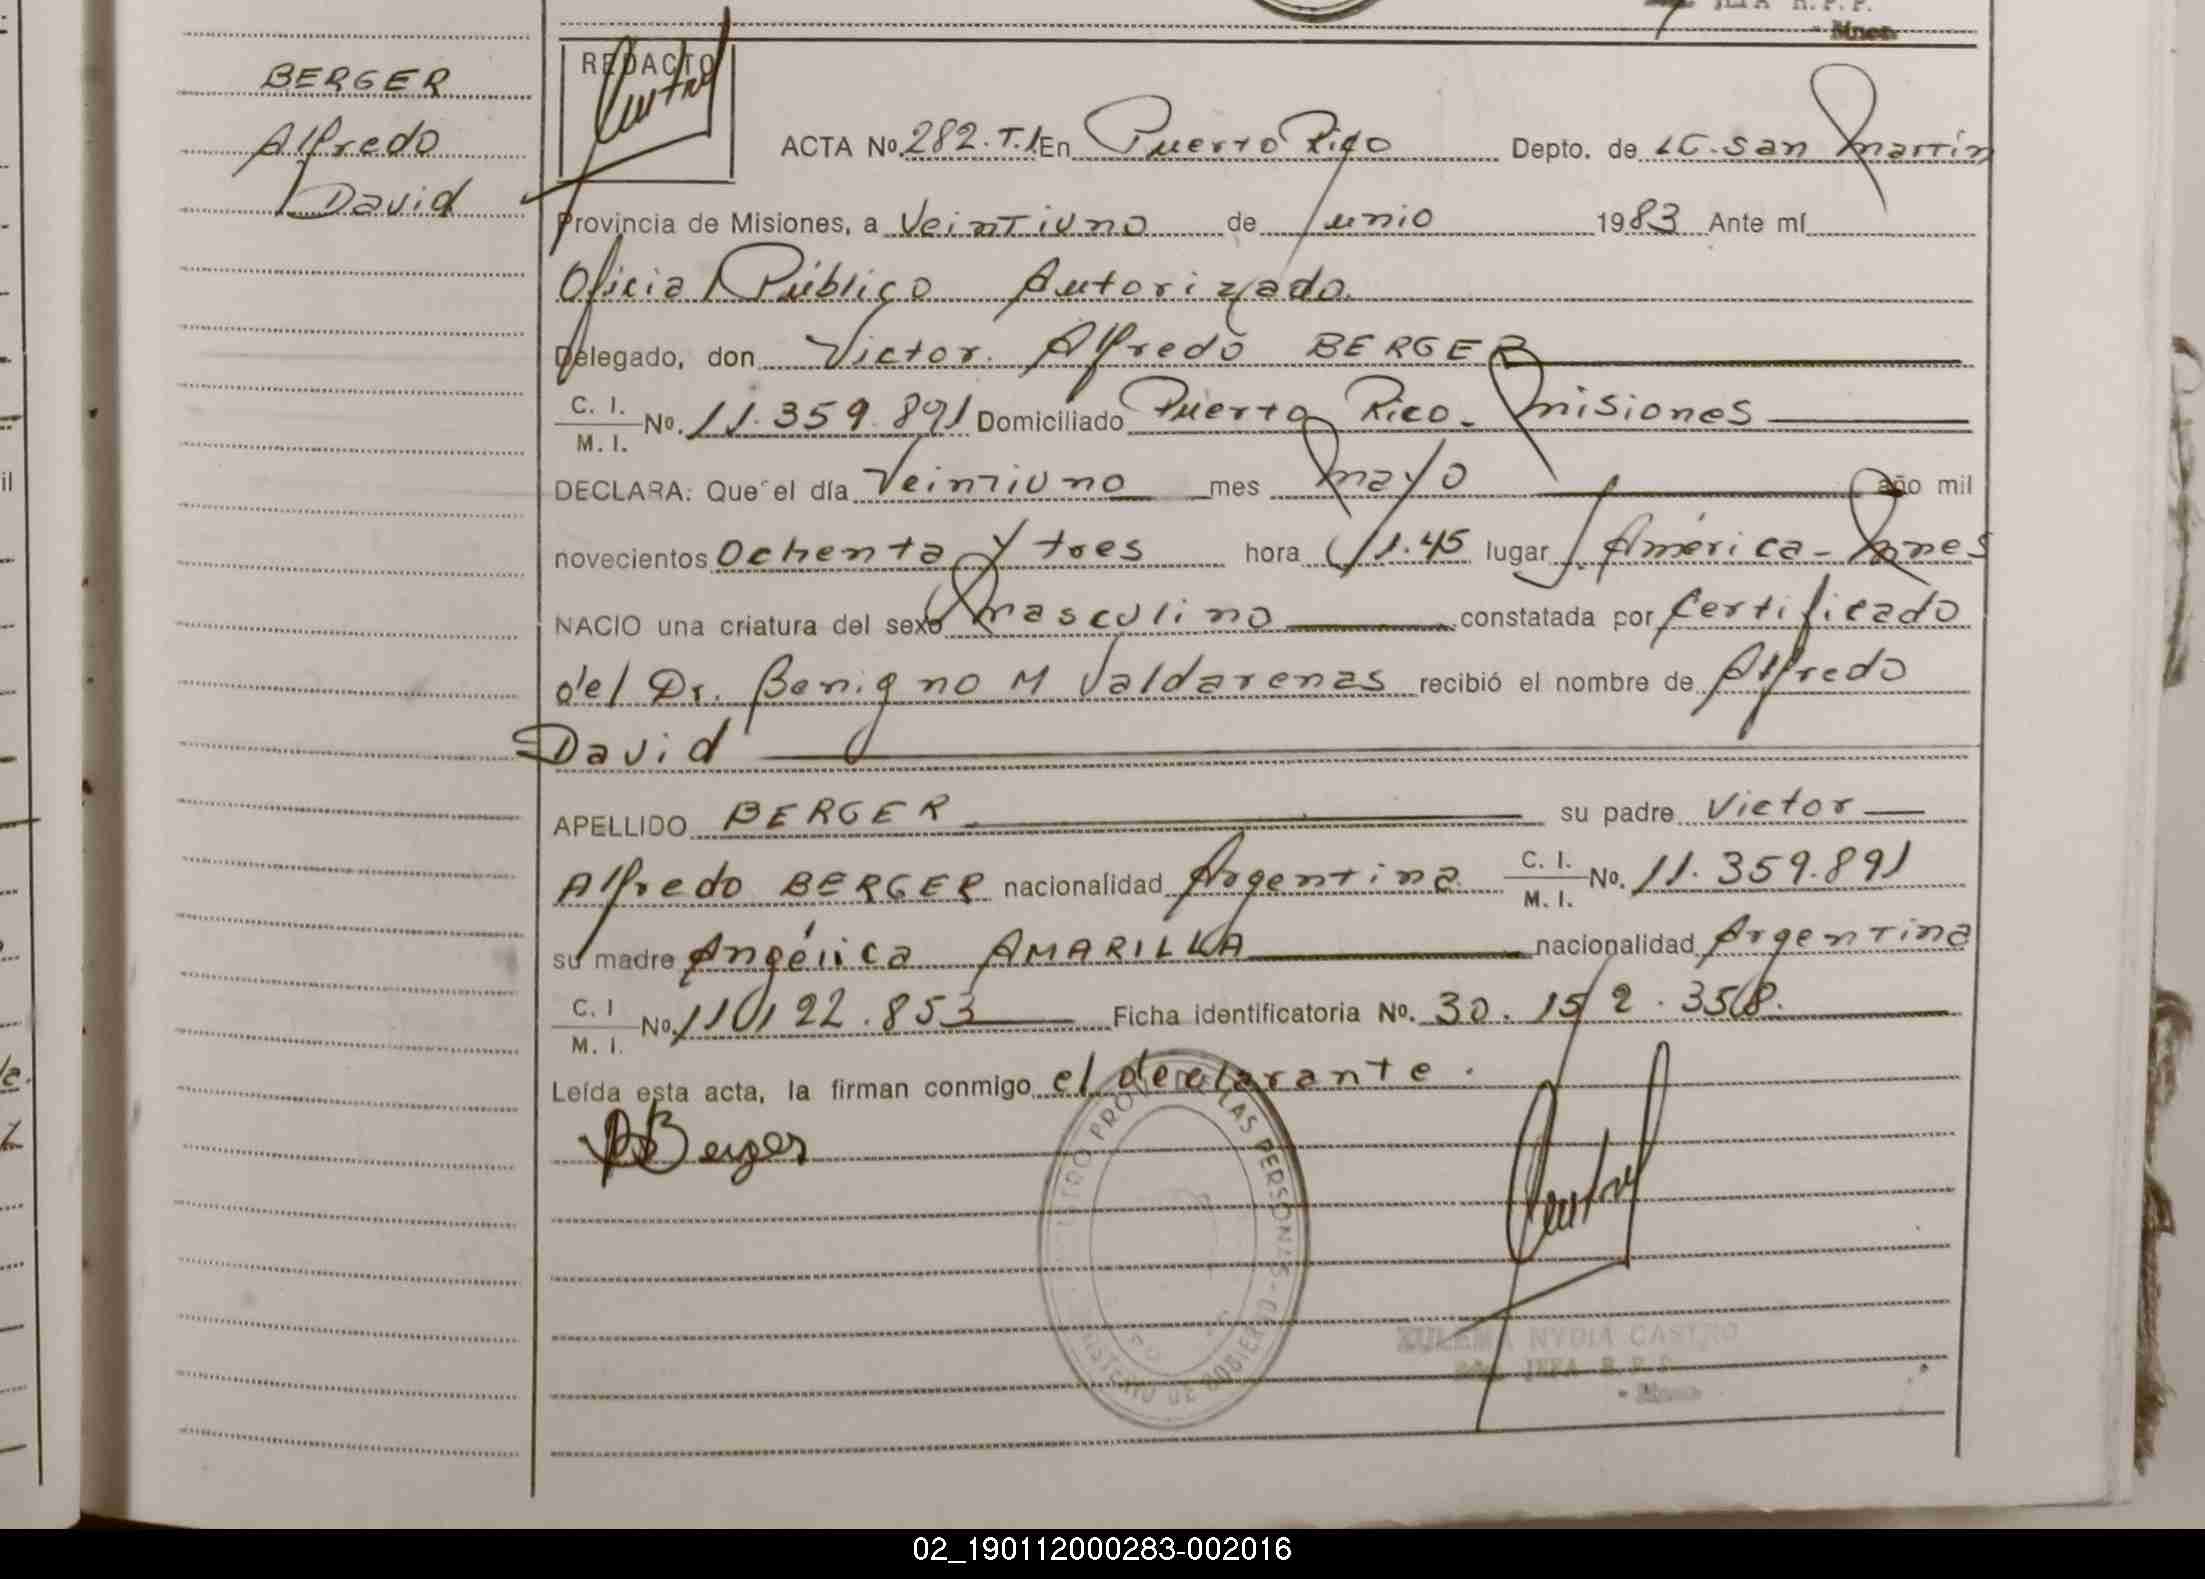 JEFA R.P.P.
Mnes.
BERGER
Alfredo
David
REDACTO
ACTA No. 282.T.1 En Puerto Rico Depto. de LG. San Martín
Provincia de Misiones, a Veintiuno de Junio 1983 Ante mí
Oficial Público Autorizado.
Delegado, don Victor Alfredo BERGER
C. I.
M. I. No. 11.359.891 Domiciliado Puerto Rico - Misiones
DECLARA: Que el día Veintiuno mes mayo año mil
novecientos Ochenta y tres hora 11.45 lugar J. América - Mnes
NACIO una criatura del sexo masculino constatada por Certificado
del Dr. Benigno M Valdarenas recibió el nombre de Alfredo
David
APELLIDO BERGER su padre Victor
Alfredo BERGER nacionalidad Argentina C. I. M. I. No. 11.359.891
su madre Angélica AMARILLA nacionalidad Argentina
C. I M. I. No. Ficha identificatoria No. 30.152.358.
Leída esta acta, la firman conmigo el declarante.
Berger
LAS PERSONAS
DE GOBIERNO
ZULEMA NYDIA CASTRO
JEFA R.P.P.
Mnes
02_190112000283-002016